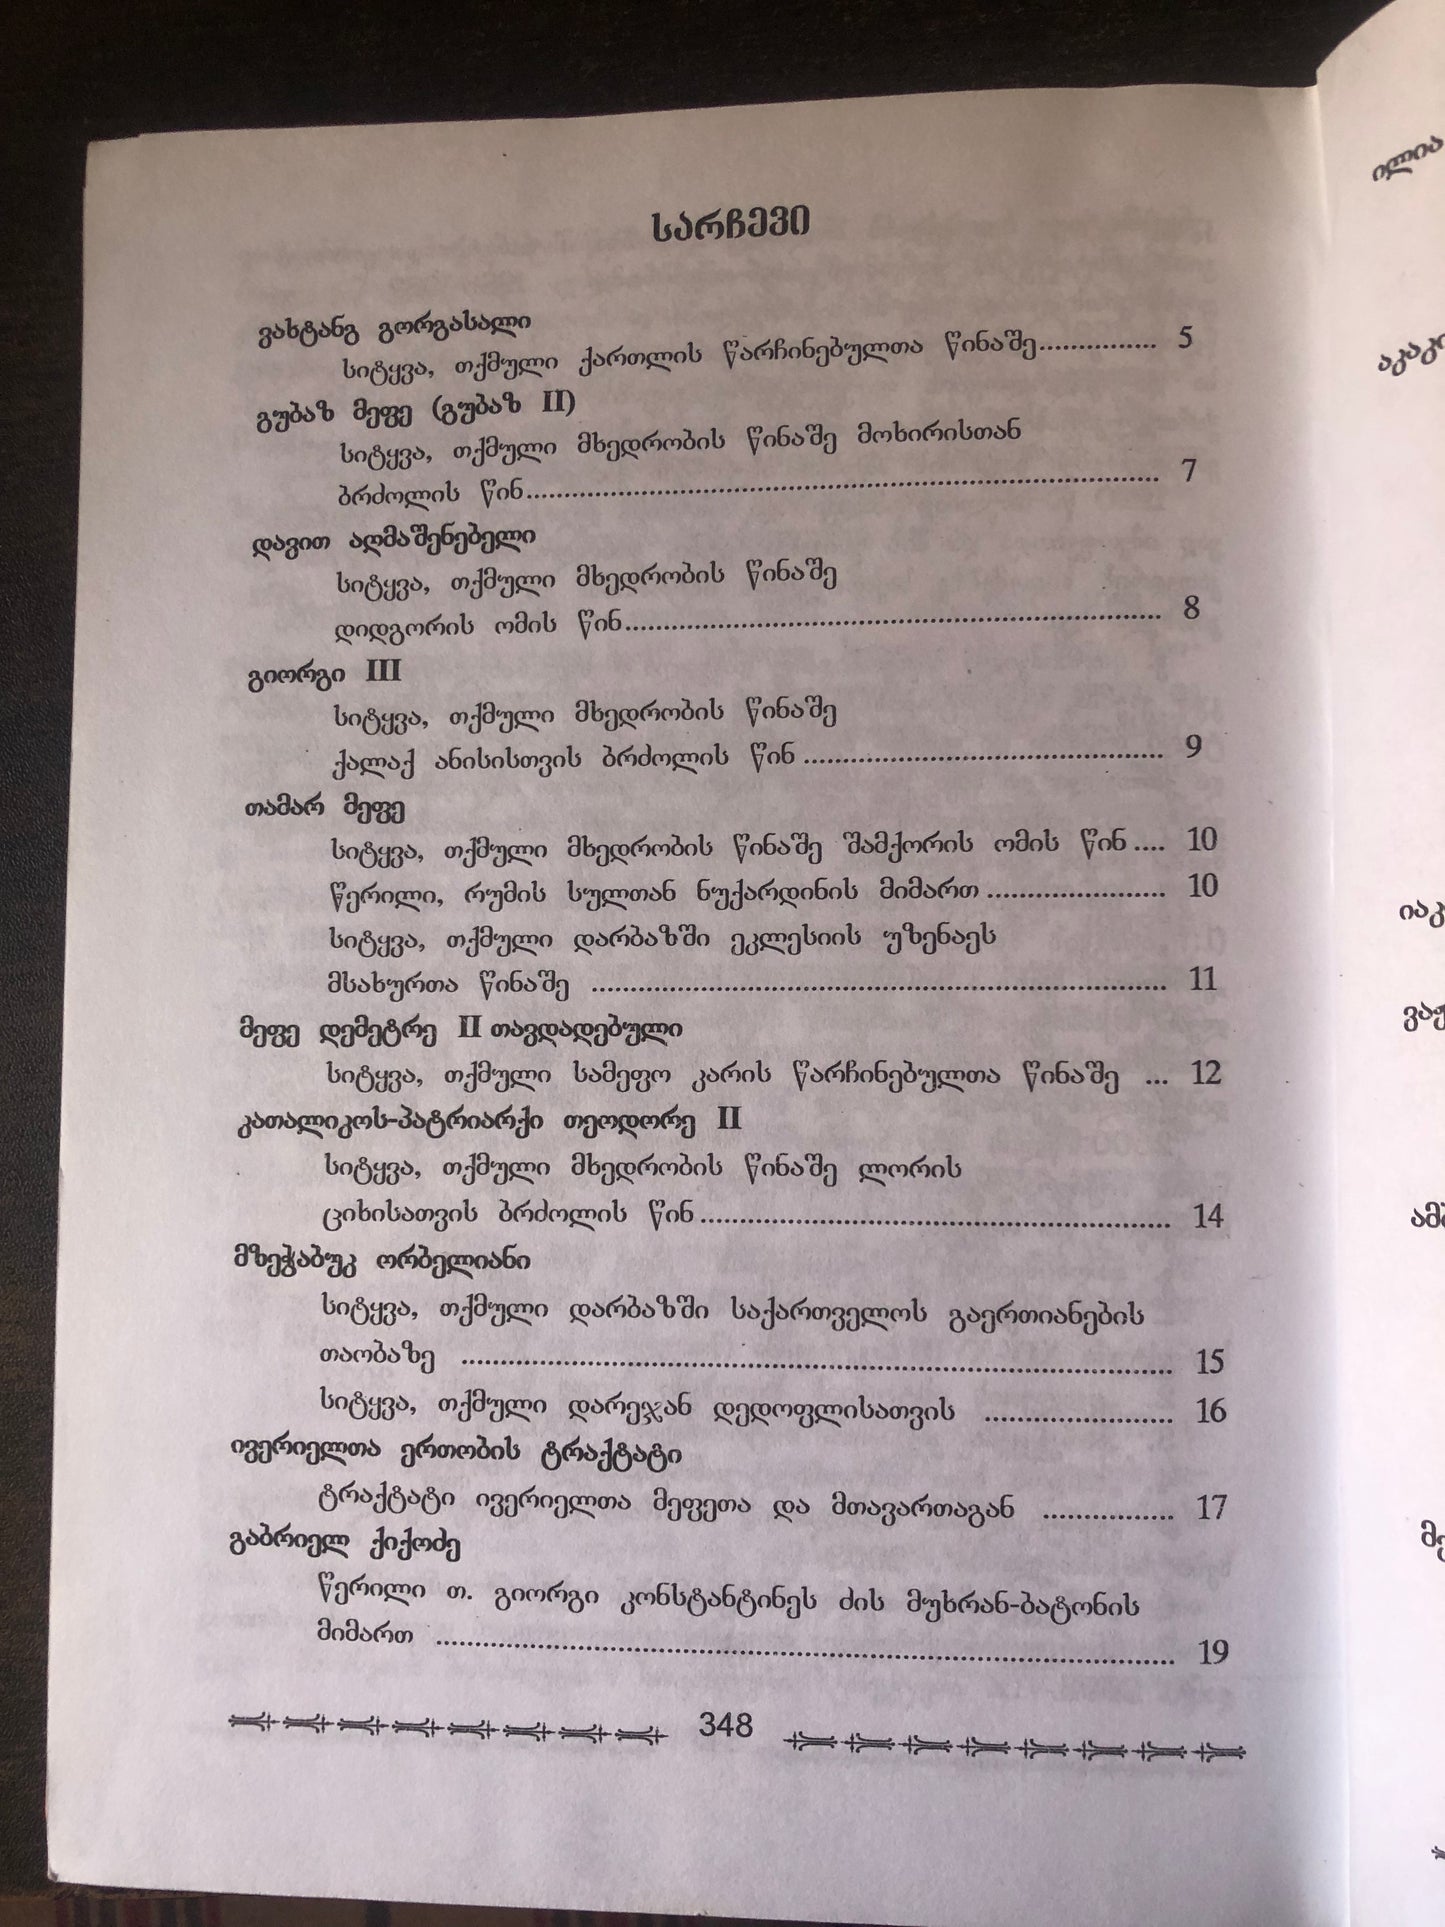 სარჩევი
ვახტანგ გორგასალი
სიტყვა, თქმული ქართლის წარჩინებულთა წინაშე............... 5
გუბაზ მეფე (გუბაზ II)
სიტყვა, თქმული მხედრობის წინაშე მოხირისთან
ბრძოლის წინ........................................................................ 7
დავით აღმაშენებელი
სიტყვა, თქმული მხედრობის წინაშე
დიდგორის ომის წინ............................................................ 8
გიორგი III
სიტყვა, თქმული მხედრობის წინაშე
ქალაქ ანისისთვის ბრძოლის წინ ........................................ 9
თამარ მეფე
სიტყვა, თქმული მხედრობის წინაშე შამქორის ომის წინ .... 10
წერილი, რუმის სულთან ნუქარდინის მიმართ ..................... 10
სიტყვა, თქმული დარბაზში ეკლესიის უზენაეს
მსახურთა წინაშე ................................................................ 11
მეფე დემეტრე II თავდადებული
სიტყვა, თქმული სამეფო კარის წარჩინებულთა წინაშე ... 12
კათალიკოს-პატრიარქი თეოდორე II
სიტყვა, თქმული მხედრობის წინაშე ლორის
ციხისათვის ბრძოლის წინ .................................................... 14
მზეჭაბუკ ორბელიანი
სიტყვა, თქმული დარბაზში საქართველოს გაერთიანების
თაობაზე ............................................................................ 15
სიტყვა, თქმული დარეჯან დედოფლისათვის ..................... 16
ივერიელთა ერთობის ტრაქტატი
ტრაქტატი ივერიელთა მეფეთა და მთავართაგან ............... 17
გაბრიელ ქიქოძე
წერილი თ. გიორგი კონსტანტინეს ძის მუხრან-ბატონის
მიმართ ................................................................................ 19
348
ილია